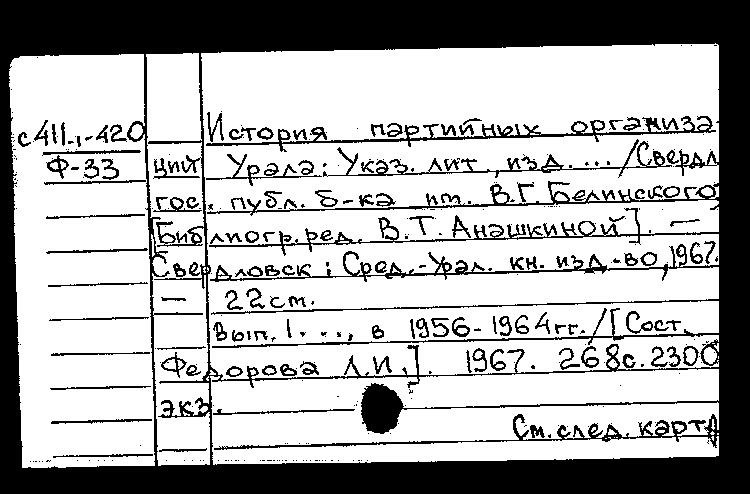 с411.,-420 История партийных организа-
Ф-33 ций Урала: Указ. лит, изд. ... /Свердл
гос. публ. б-ка им. В.Г. Белинского;
[Библиогр. ред. В.Т. Анашкиной]. —
Свердловск: Сред.-Урал. кн. изд-во, 1967.
— 22см.
Вып. 1. ..., в 1956-1964гг. /[Сост.
Федорова Л.И.]. 1967. 268с. 2300
экз.
См. след. карт